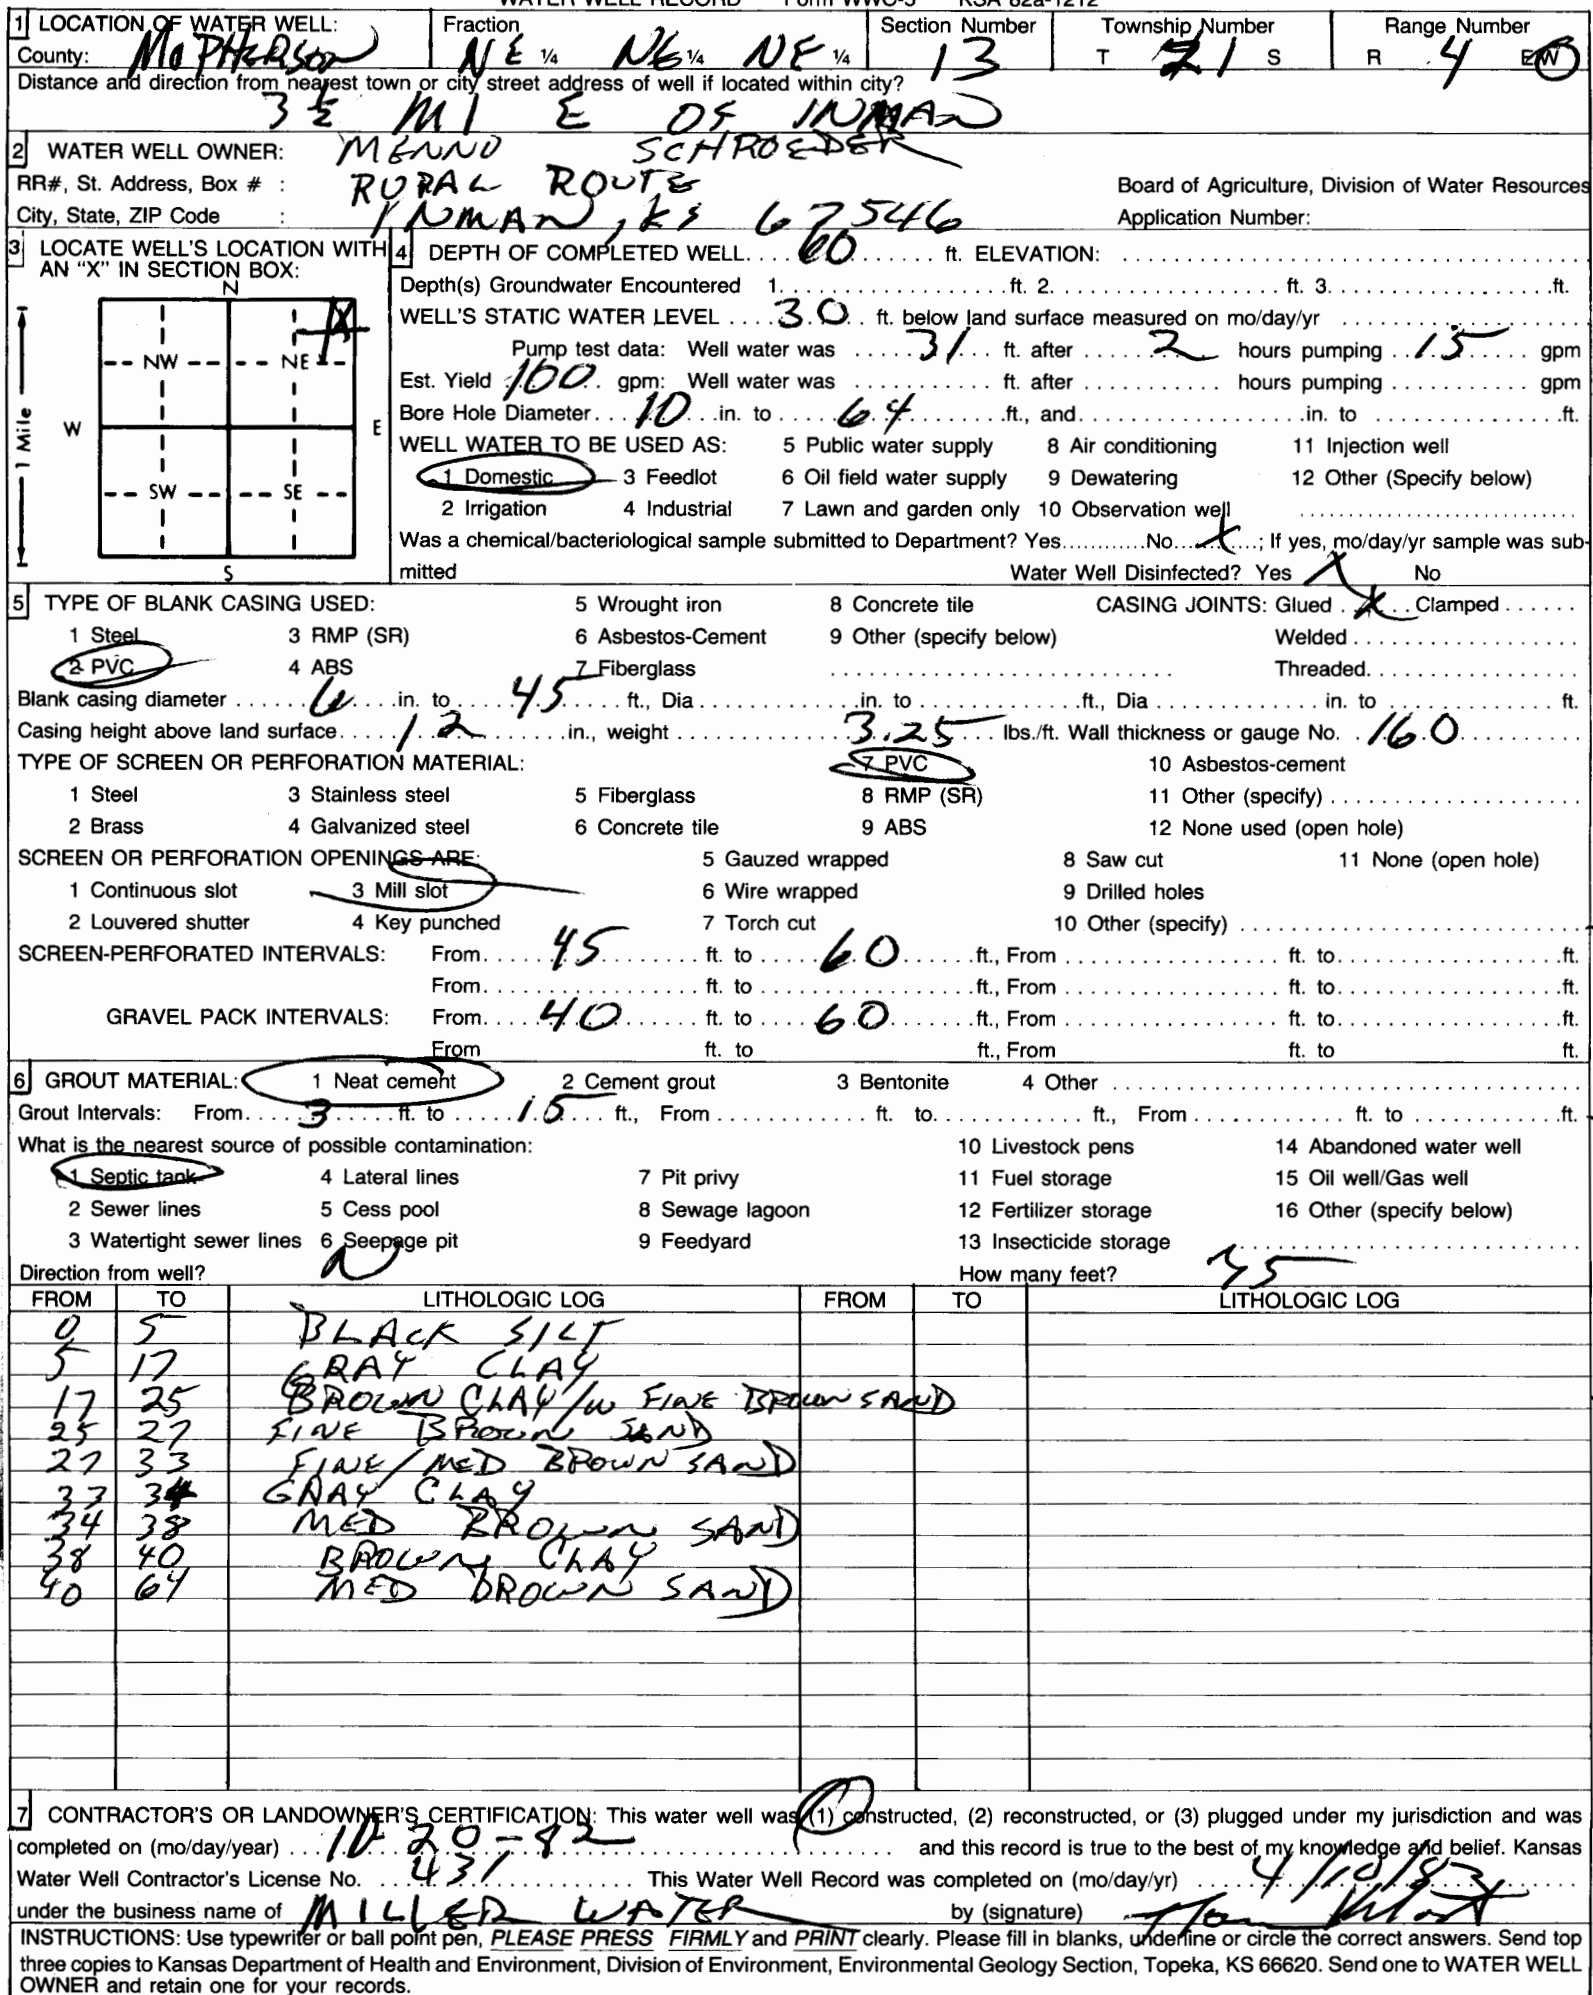 WATER WELL RECORD Form WWC-5 KSA 82a-1212
1 LOCATION OF WATER WELL: Fraction Section Number Township Number Range Number
County: McPHERSON NE ¼ NE ¼ NE ¼ 13 T 21 S R 4 E W
Distance and direction from nearest town or city street address of well if located within city?
3 ½ MI E OF INMAN
2 WATER WELL OWNER: MENNO SCHROEDER
RR#, St. Address, Box # : RURAL ROUTE Board of Agriculture, Division of Water Resources
City, State, ZIP Code : INMAN, KS 67546 Application Number:
3 LOCATE WELL'S LOCATION WITH AN "X" IN SECTION BOX:
N
NW NE
W E
SW SE
S
1 Mile
X
4 DEPTH OF COMPLETED WELL.... 60 ...... ft. ELEVATION: ......
Depth(s) Groundwater Encountered 1. ...... ft. 2. ...... ft. 3. ...... ft.
WELL'S STATIC WATER LEVEL .... 30 .. ft. below land surface measured on mo/day/yr ......
Pump test data: Well water was ..... 31 ... ft. after ..... 2 hours pumping .. 15 ..... gpm
Est. Yield 100 . gpm: Well water was ...... ft. after ...... hours pumping ...... gpm
Bore Hole Diameter.... 10 ..in. to ..... 64 ......ft., and ......in. to ......ft.
WELL WATER TO BE USED AS: 5 Public water supply 8 Air conditioning 11 Injection well
1 Domestic 3 Feedlot 6 Oil field water supply 9 Dewatering 12 Other (Specify below)
2 Irrigation 4 Industrial 7 Lawn and garden only 10 Observation well ......
Was a chemical/bacteriological sample submitted to Department? Yes......No... X ...; If yes, mo/day/yr sample was sub-
mitted Water Well Disinfected? Yes X No
5 TYPE OF BLANK CASING USED: 5 Wrought iron 8 Concrete tile CASING JOINTS: Glued . X . . Clamped ......
1 Steel 3 RMP (SR) 6 Asbestos-Cement 9 Other (specify below) Welded ......
2 PVC 4 ABS 7 Fiberglass ...... Threaded......
Blank casing diameter ...... 6 ....in. to .... 45 ..... ft., Dia ......in. to ......ft., Dia ...... in. to ...... ft.
Casing height above land surface.... 12 ......in., weight ...... 3.25 ... lbs./ft. Wall thickness or gauge No. 160 ......
TYPE OF SCREEN OR PERFORATION MATERIAL: 7 PVC 10 Asbestos-cement
1 Steel 3 Stainless steel 5 Fiberglass 8 RMP (SR) 11 Other (specify) ......
2 Brass 4 Galvanized steel 6 Concrete tile 9 ABS 12 None used (open hole)
SCREEN OR PERFORATION OPENINGS ARE: 5 Gauzed wrapped 8 Saw cut 11 None (open hole)
1 Continuous slot 3 Mill slot 6 Wire wrapped 9 Drilled holes
2 Louvered shutter 4 Key punched 7 Torch cut 10 Other (specify) ......
SCREEN-PERFORATED INTERVALS: From..... 45 ...... ft. to ..... 60 ......ft., From ...... ft. to......ft.
From...... ft. to ......ft., From ...... ft. to......ft.
GRAVEL PACK INTERVALS: From.... 40 ...... ft. to .... 60 ......ft., From ...... ft. to......ft.
From ft. to ft., From ft. to ft.
6 GROUT MATERIAL: 1 Neat cement 2 Cement grout 3 Bentonite 4 Other ......
Grout Intervals: From.... 3 ....ft. to ..... 15 .... ft., From ...... ft. to...... ft., From ...... ft. to ......ft.
What is the nearest source of possible contamination: 10 Livestock pens 14 Abandoned water well
1 Septic tank 4 Lateral lines 7 Pit privy 11 Fuel storage 15 Oil well/Gas well
2 Sewer lines 5 Cess pool 8 Sewage lagoon 12 Fertilizer storage 16 Other (specify below)
3 Watertight sewer lines 6 Seepage pit 9 Feedyard 13 Insecticide storage ......
Direction from well? N How many feet?
FROM TO LITHOLOGIC LOG FROM TO LITHOLOGIC LOG
0 5 BLACK SILT
5 17 GRAY CLAY
17 25 BROWN CLAY /W FINE BROWN SAND
25 27 FINE BROWN SAND
27 33 FINE/MED BROWN SAND
33 34 GRAY CLAY
34 38 MED BROWN SAND
38 40 BROWN CLAY
40 64 MED BROWN SAND
7 CONTRACTOR'S OR LANDOWNER'S CERTIFICATION: This water well was (1) constructed, (2) reconstructed, or (3) plugged under my jurisdiction and was
completed on (mo/day/year) ... 10-20-82 ...... and this record is true to the best of my knowledge and belief. Kansas
Water Well Contractor's License No. .... 431 ...... This Water Well Record was completed on (mo/day/yr) ...... 4/10/83 ......
under the business name of MILLER WATER by (signature)
INSTRUCTIONS: Use typewriter or ball point pen, PLEASE PRESS FIRMLY and PRINT clearly. Please fill in blanks, underline or circle the correct answers. Send top
three copies to Kansas Department of Health and Environment, Division of Environment, Environmental Geology Section, Topeka, KS 66620. Send one to WATER WELL
OWNER and retain one for your records.